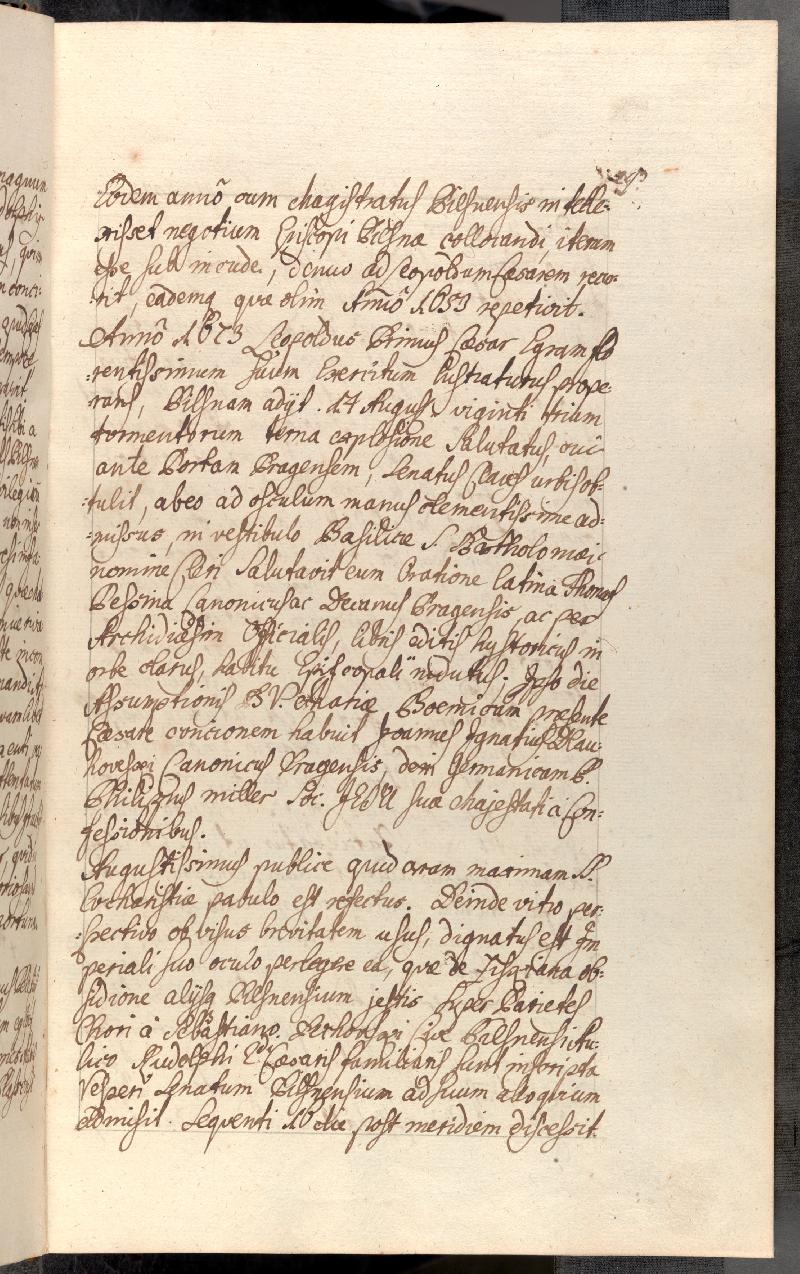 Eodem annô cum Magistratus Pilsnensis intelle-
xisset negotium Episcopi Pilsnæ collocandi, iterum
esse sub incude, denuo ad Leopoldum Cæsarem recur-
rit, eademq quæ olim Annô 1653 repetivit.
Annô 1673 Leopoldus Primus Cæsar Egram flo
-rentissimum suum Exercitum lustraturus prope
rans, Pilsnam adijt. 14 August. viginti trium
tormentorum terna explosione salutatus, cui
ante Portam Pragensem, Senatus Claves urbis ob-
-tulit, abeo ad osculum manus clementissime ad-
-missus, in vestibulo Basilicæ S. Bartholomæi
nomine Cleri salutavit eum Oratione latina Thomas
Pessina Canonicus ac Decanus Pragensis, ac per
Archidiæcesim Officialis, libris editis hystoricus in
orbe clarus, habitu Episcopali indutus; Ipso die
Assumptionis B V. Mariæ Boemicam præsente
Cæsare concionem habuit Joannes Ignatius Dlau-
hovesky Canonicus Pragensis, dein Germanicam P.
Philippus Miller Soc. JESU suæ Majestati à Con-
fessionibus.
Augustissimus publice quid aram maximam SS.
Eucharistiæ pabulo est refectus. Deinde vitro per-
-spectivo ob visus brevitatem usus, dignatus est Im
periali suo oculo perlegere ea, quæ de Zisgiana ob-
sidione alijsq Pilsnensium gestis super Parietes
Chori à Sebastiano Cive Pilsnensi Au-
lico Rudolphi 2di Cæsaris familiaris sunt inscripta
Vesperi Senatum Pilsnensium ad suum alloquium
admisit. Sequenti 16 die post meridiem discessit.